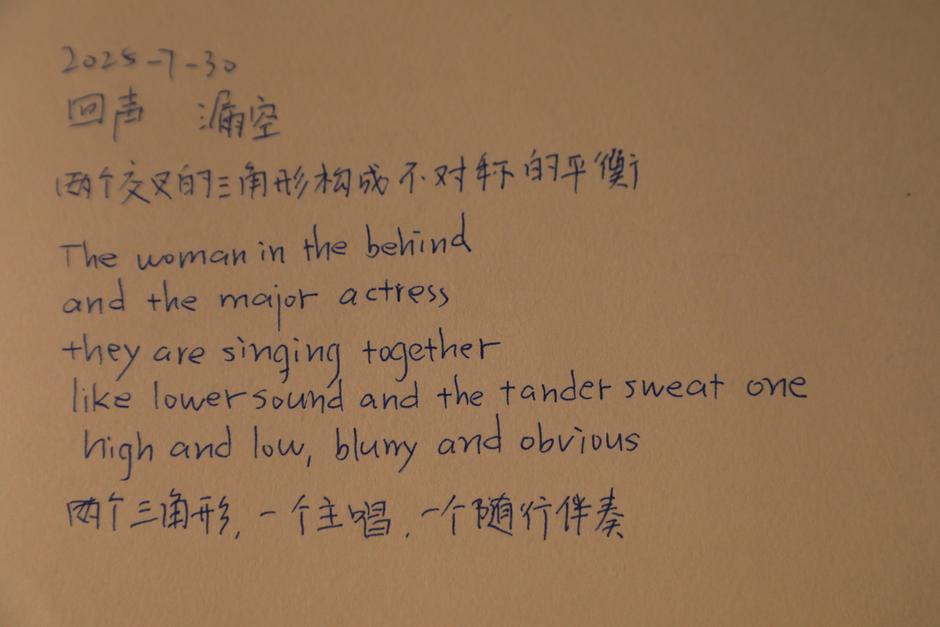 2025-7-30
回声 漏空
两个交叉的三角形构成不对称的平衡
The woman in the behind
and the major actress
they are singing together
like lower sound and the tander sweat one
high and low, blurry and obvious
两个三角形, 一个主唱, 一个随行伴奏